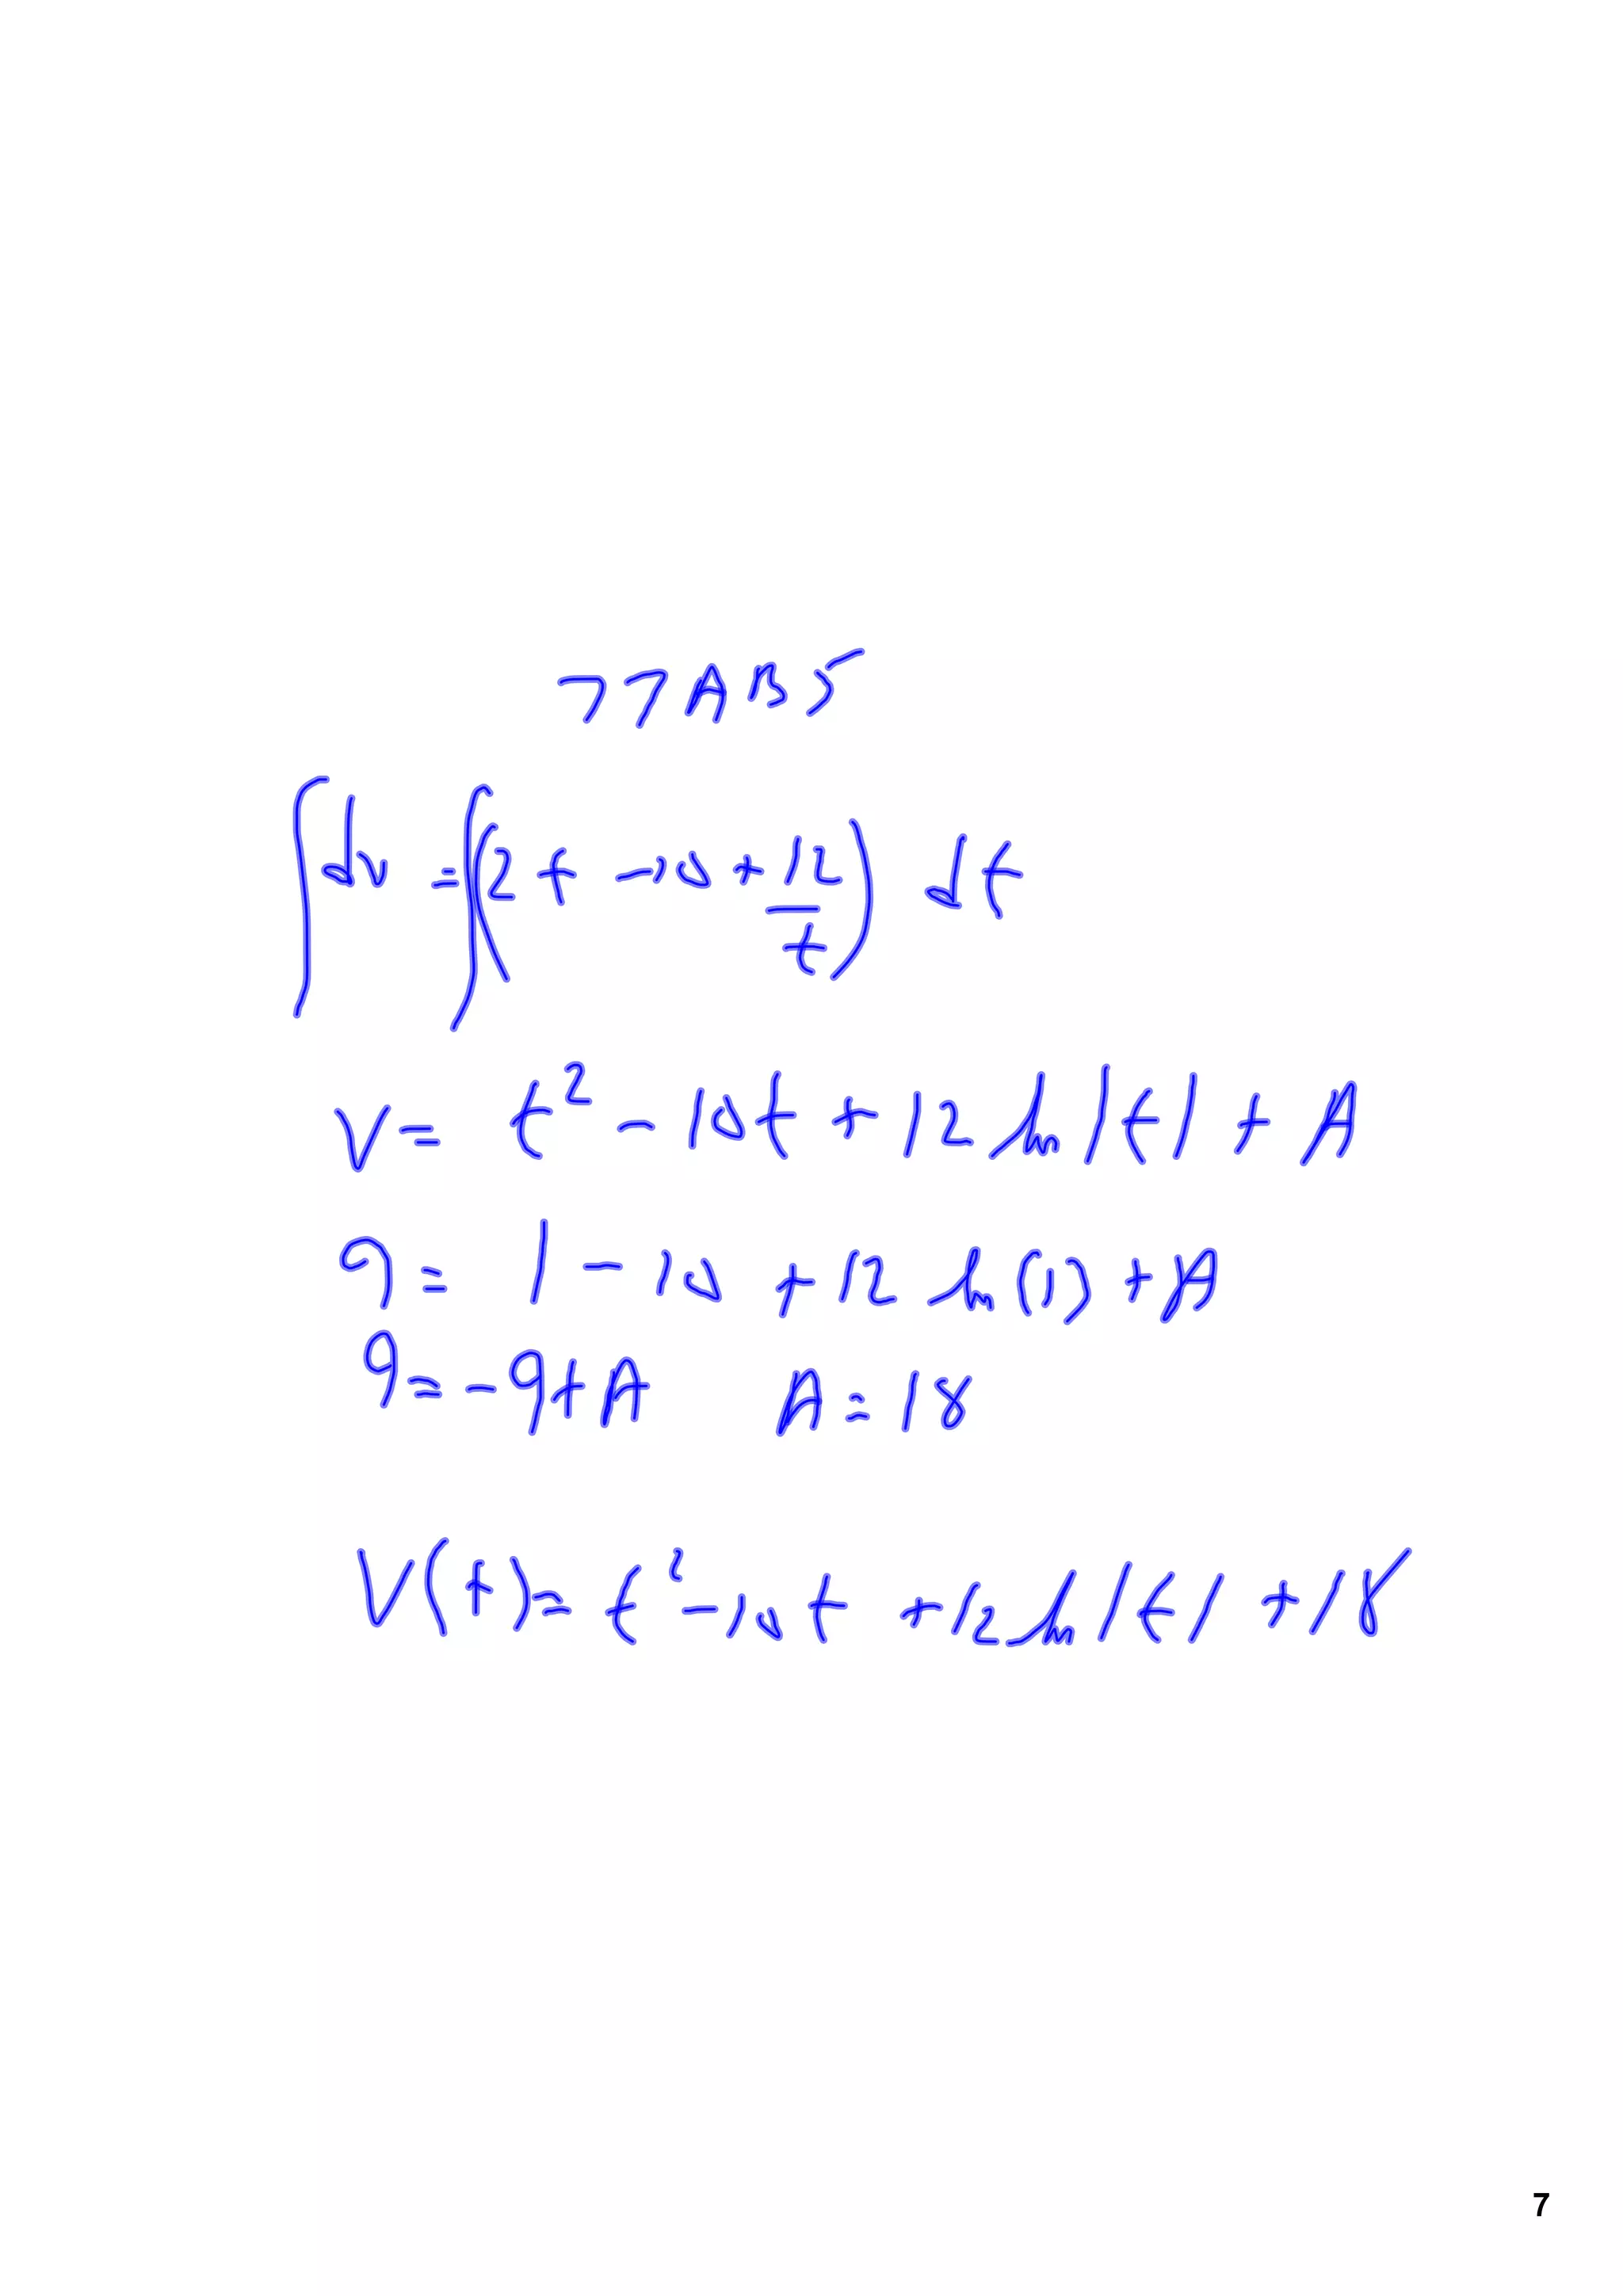 77AB5
∫dv = ∫(2t - 10 + 12/t) dt
v = t² - 10t + 12 ln|t| + A
9 = 1 - 10 + 12 ln(1) + A
9 = -9 + A A = 18
V(t) = t² - 10t + 12 ln|t| + 18
7